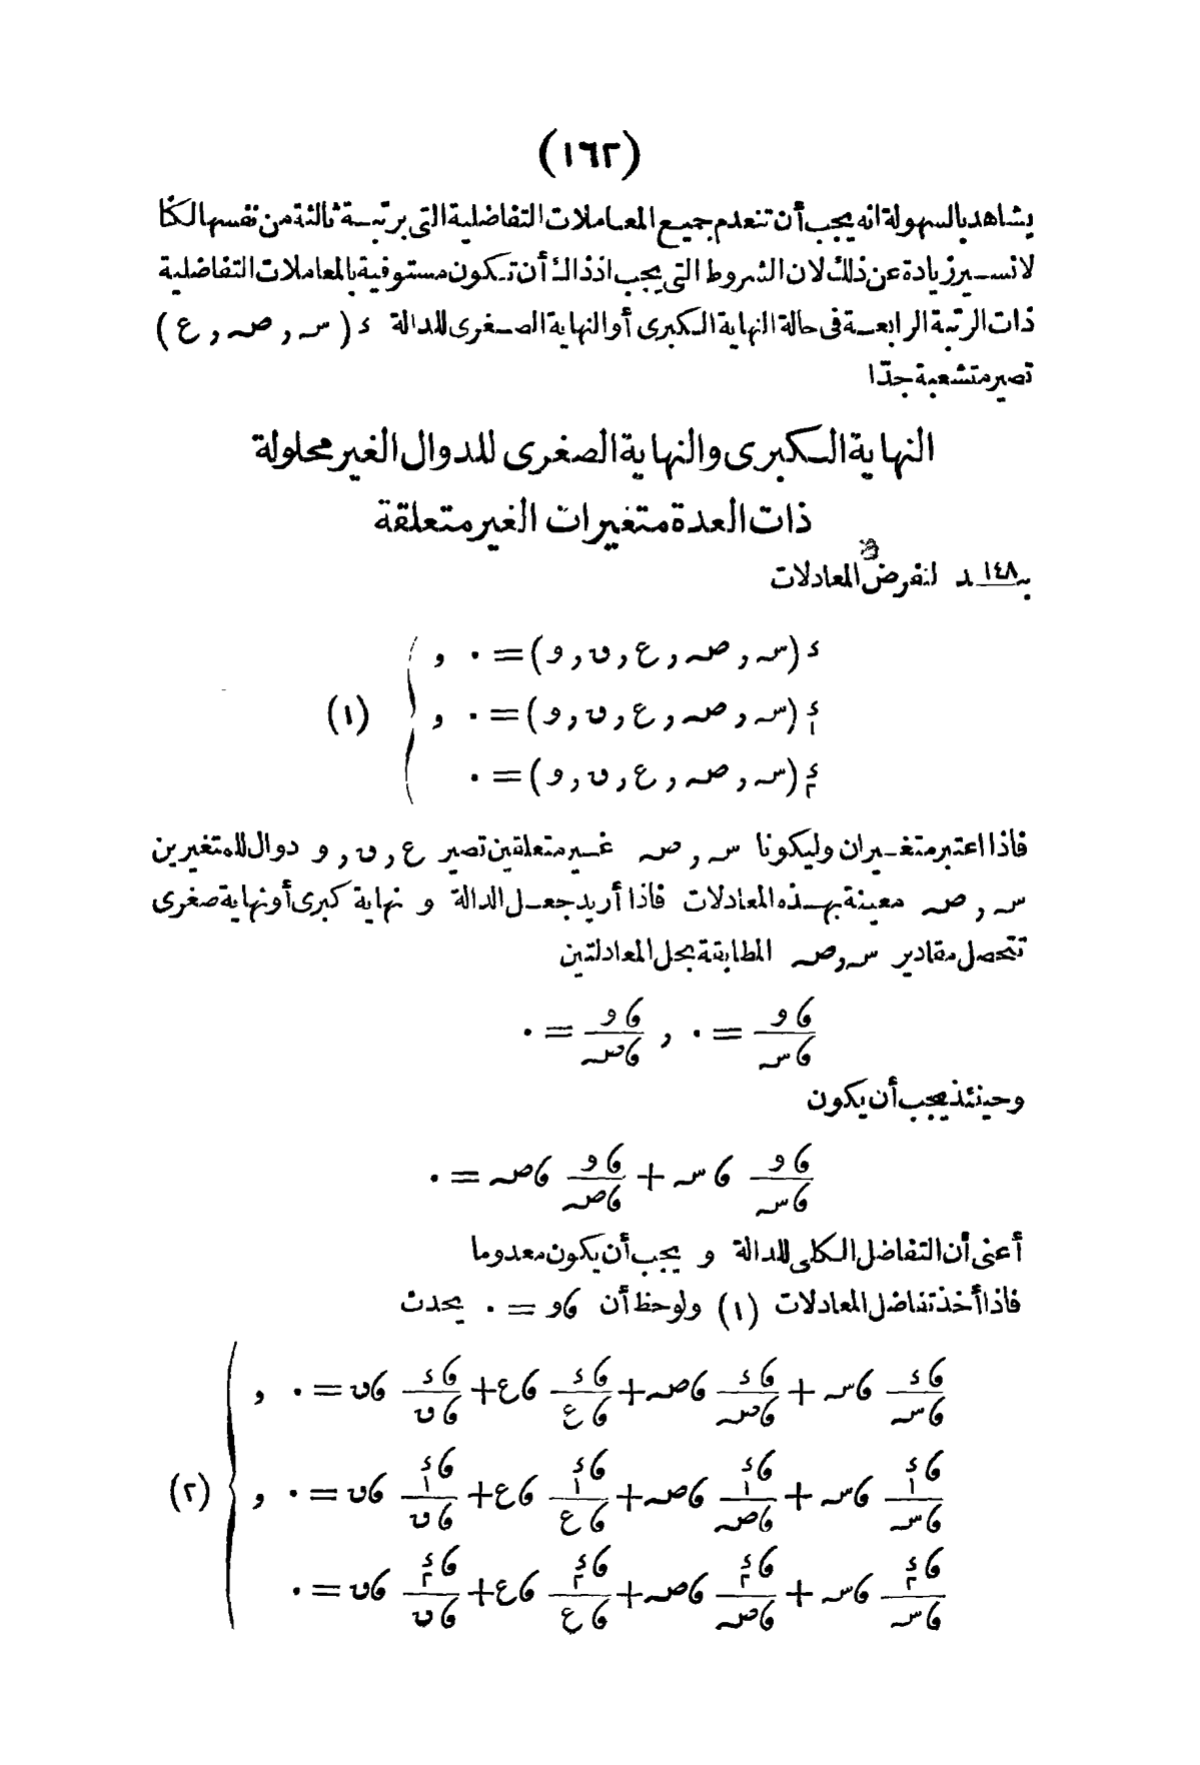 (١٦٢)
يشاهد بالسهولة انه يجب أن تنعدم جميع المعاملات التفاضلية التى برتبة ثالثة من نفسها لكنا
لا نسير زيادة عن ذلك لان الشروط التى يجب اذ ذاك أن تكون مستوفية بالمعاملات التفاضلية
ذات الرتبة الرابعة فى حالة النهاية الكبرى أو النهاية الصغرى للدالة د (س , صـ , ع)
تصير متشعبة جدّا
النهاية الكبرى والنهاية الصغرى للدوال الغير محلولة
ذات العدة متغيرات الغير متعلقة
١٤٨ لنفرض المعادلات
د (س , صـ , ع , ں , و) = ٠ ,
د١ (س , صـ , ع , ں , و) = ٠ , (١)
د٢ (س , صـ , ع , ں , و) = ٠
فاذا اعتبر متغيران وليكونا س , صـ غير متعلقين تصير ع , ں , و دوال للمتغيرين
س , صـ معينة بهذه المعادلات فاذا أريد جعل الدالة و نهاية كبرى أو نهاية صغرى
تتحصل مقادير س , صـ المطابقة بحل المعادلتين
ء و / ء س = ٠ , ء و / ء صـ = ٠
وحينئذ يجب أن يكون
ء و / ء س ء س + ء و / ء صـ ء صـ = ٠
أعنى أن التفاضل الكلى للدالة و يجب أن يكون معدوما
فاذا أخذ تفاضل المعادلات (١) ولوحظ أن ء و = ٠ يحدث
ء د / ء س ء س + ء د / ء صـ ء صـ + ء د / ء ع ء ع + ء د / ء ں ء ں = ٠ ,
ء د١ / ء س ء س + ء د١ / ء صـ ء صـ + ء د١ / ء ع ء ع + ء د١ / ء ں ء ں = ٠ , (٢)
ء د٢ / ء س ء س + ء د٢ / ء صـ ء صـ + ء د٢ / ء ع ء ع + ء د٢ / ء ں ء ں = ٠